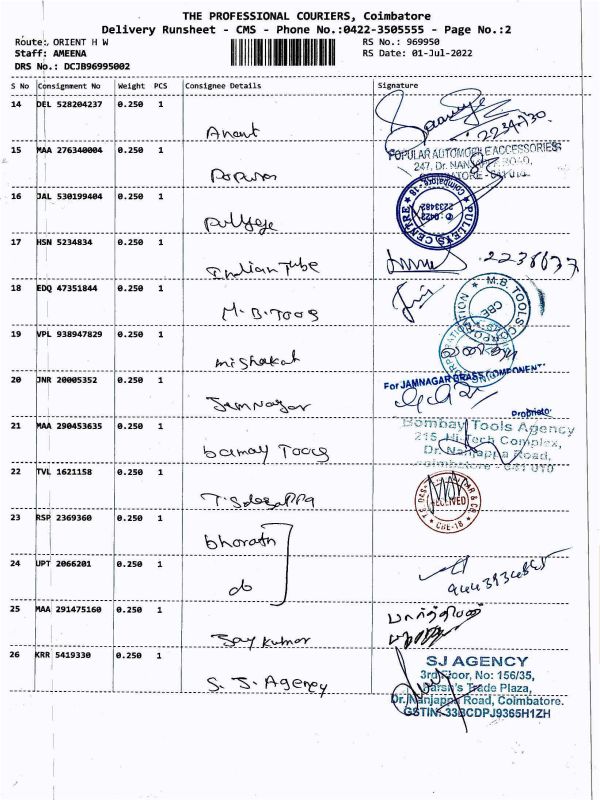 THE PROFESSIONAL COURIERS, Coimbatore
Delivery Runsheet - CMS - Phone No.:0422-3505555 - Page No.:2
Route: ORIENT H W
RS No.: 969950
Staff: AMEENA
RS Date: 01-Jul-2022
DRS No.: DCJB96995002
S No Consignment No Weight PCS Consignee Details Signature
14 DEL 528204237 0.250 1
Anant
15 MAA 276340004 0.250 1
POPULAR AUTOMOBILE ACCESSORIES
247, Dr. NANJAPPA ROAD,
COIMBATORE - 641 018.
Popular
16 JAL 530199404 0.250 1
PULLEYS CENTRE
Coimbatore - 18
✆ : 0422
2233482
17 HSN 5234834 0.250 1
Indian Tube
18 EDQ 47351844 0.250 1
M.B. TOOLS CORPORATION
CBE
M.B. Toos
19 VPL 938947829 0.250 1
20 JNR 20005352 0.250 1
For JAMNAGAR BRASS COMPONENT
Proprieto
Jamnagar
21 MAA 290453635 0.250 1
Bombay Tools Agency
215, Hi-Tech Complex,
Dr. Nanjappa Road,
Coimbatore - 641 018
22 TVL 1621158 0.250 1
RECEIVED
CBE-18
23 RSP 2369360 0.250 1
bharath
24 UPT 2066201 0.250 1
do
25 MAA 291475160 0.250 1
Jay Kumar
26 KRR 5419330 0.250 1
S. J. Agency
SJ AGENCY
3rd Floor, No: 156/35,
Harsh's Trade Plaza,
Dr. Nanjappa Road, Coimbatore.
GSTIN: 33BCDPJ9365H1ZH